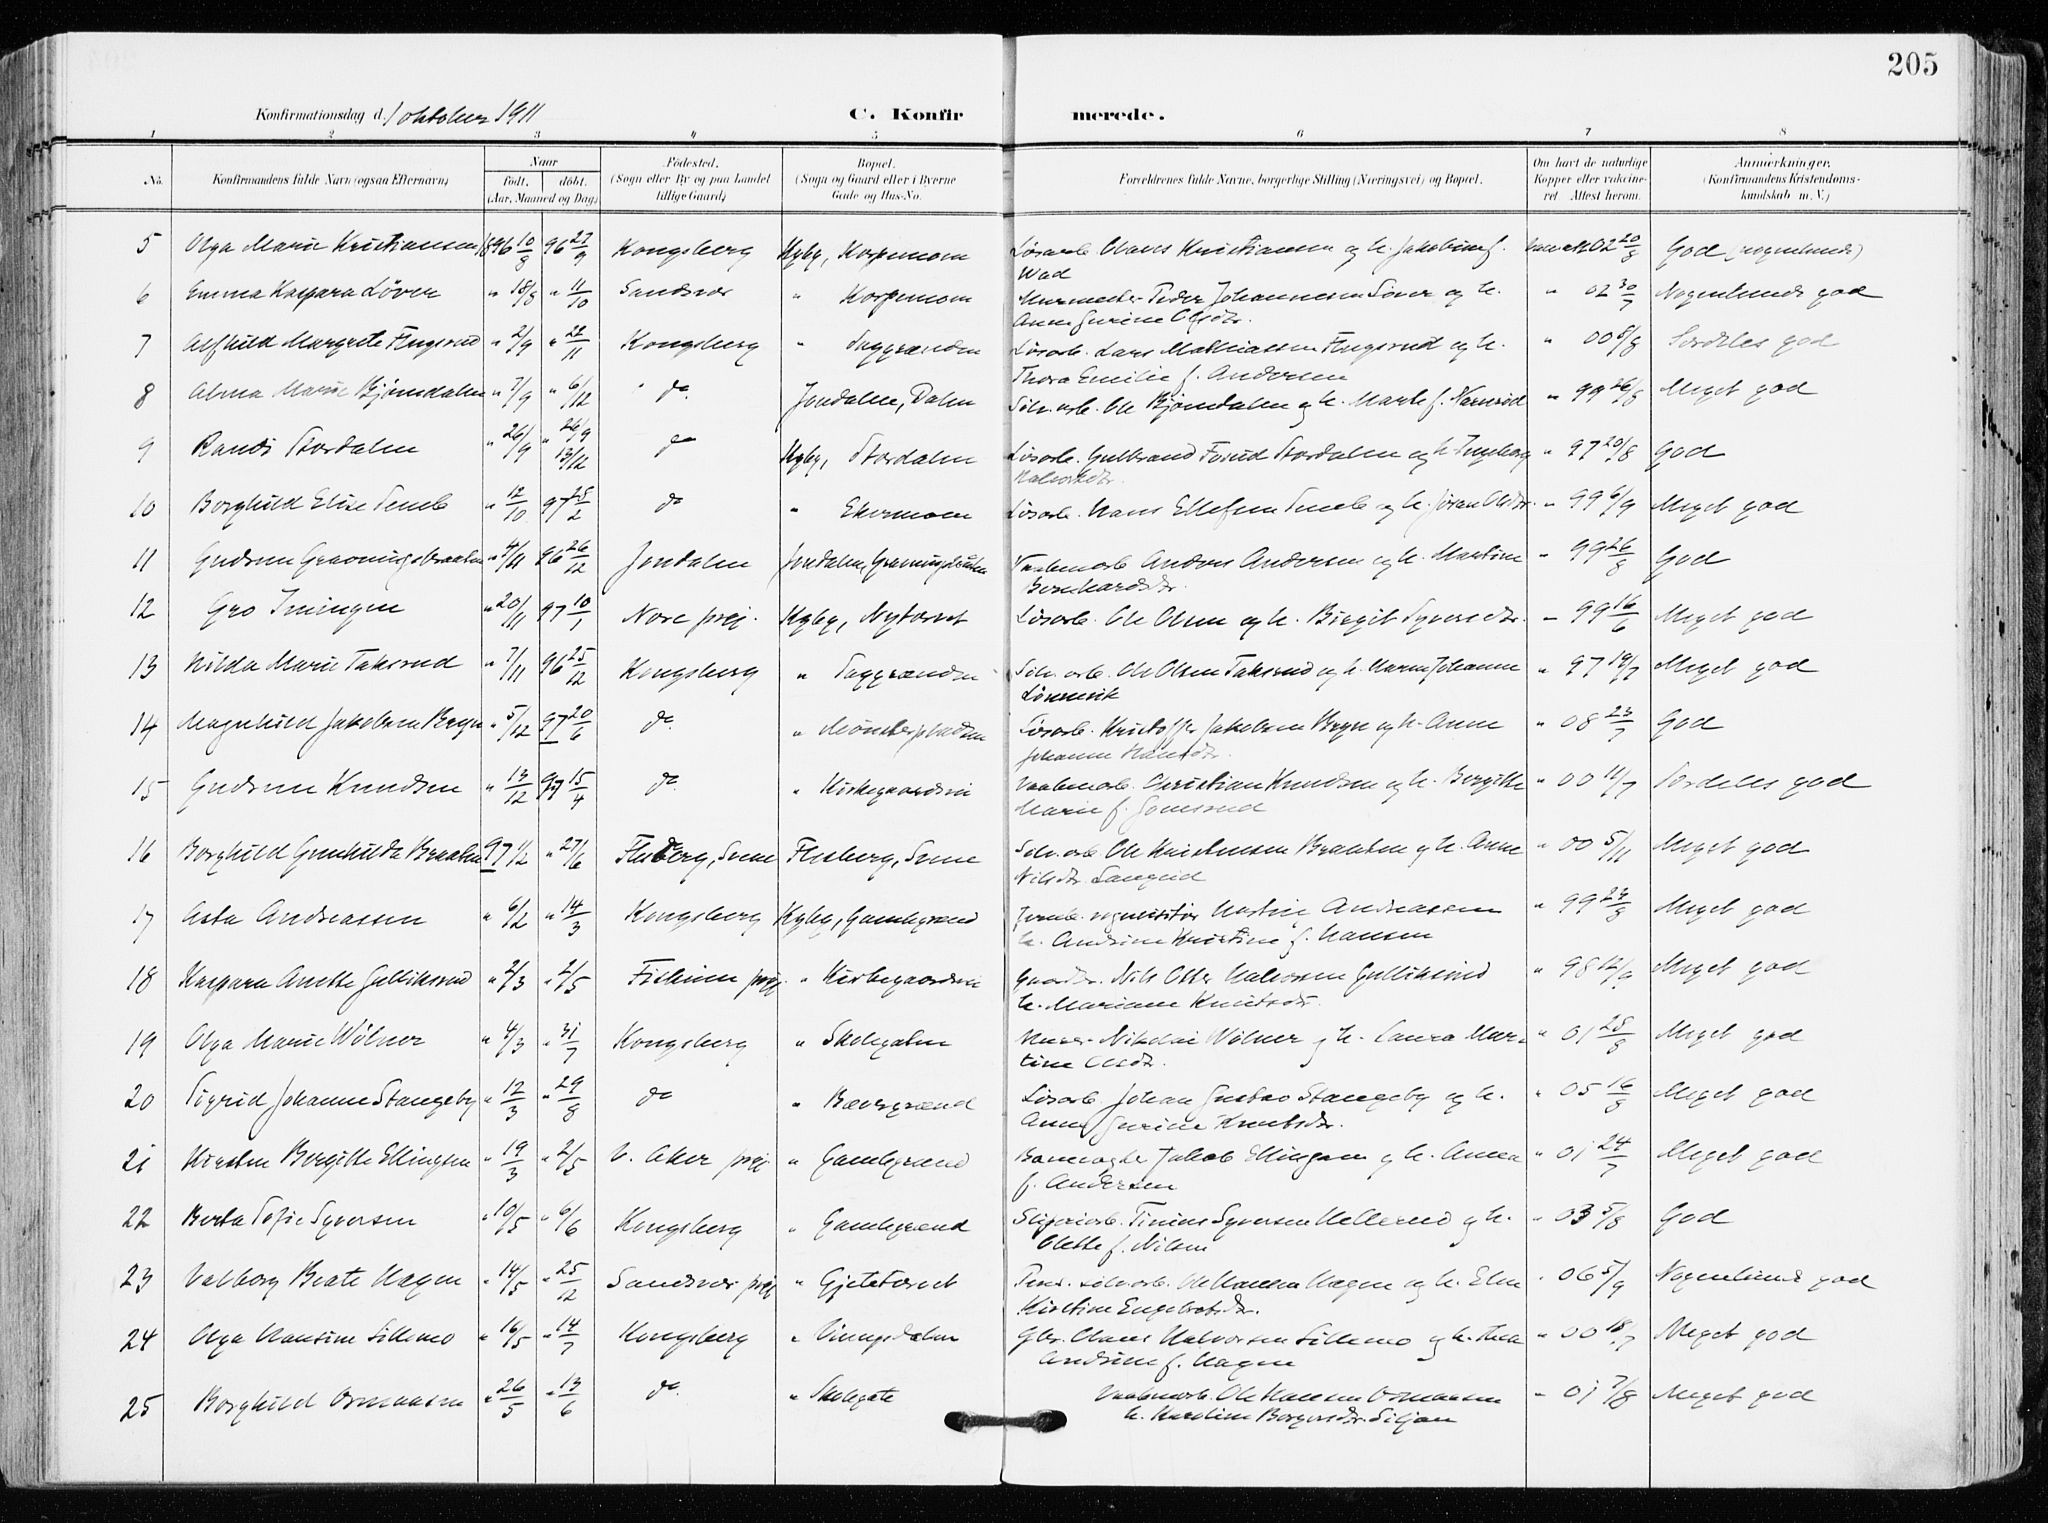 205
Konfirmationsdag d. 1 oktober 1911 C. Konfir merede.
1 2 3 4 5 6 7 8
No. Konfirmandens fulde Navn (ogsaa Efternavn) Naar født, døbt. (Aar, Maaned og Dag) Fødested. (Sogn eller By og paa Landet tillige Gaard) Bopæl. (Sogn og Gaard eller i Byerne Gade og Hus-No. Forældrenes fulde Navne, borgerlige Stilling (Næringsvei) og Bopæl. Om havt de naturlige Kopper eller vakcineret Attest herom. Anmærkninger. (Konfirmandens Kristendomskundskab m. V.)
5 Olga Marie Kristiansen 1896 10/8 96 27/9 Kongsberg Kgbg, Korpemoen Løsarb. Claus Kristiansen og h. Jakobine f. 02 20/8 God (nogenlunde)
Wad
6 Emma Kaspara Løver " 18/8 " 11/10 Sandsvær " Korpemoen Murmester Peder Johannesen Løver og h. " 02 30/7 Nogenlunde god
Anne Gurine Olsdtr.
7 Alfhild Margrete Flugsrud " 2/9 " 22/11 Kongsberg " Saggrænden Løsarb. Lars Mathiassen Flugsrud og h. " 00 8/8 Særdeles god
Thora Emilie f. Andersen
8 Alma Marie Bjørndalen " 7/9 " 6/12 " do. Jondalen, Dalen Sølv.arb. Ole Bjørndalen og h. Marte f. " 99 26/8 Meget god
9 Randi Stordalen " 26/9 " 26/9 13/12 do Kgbg, Stordalen Løsarb. Gulbrand Stordalen og h. Ingeborg " 97 20/8 God
Halvorsdtr.
10 Borghild Elise Temb " 12/10 97 28/2 do " Ekermoen Løsarb. Hans Ellefsen Temb og h. Jøran Olsdtr. " 99 6/9 Meget god
11 Gudrun Gravningsbraaten " 4/11 96 26/12 Jondalen Jondalen, Gravningsbraaten Vaabenarb. Anders Andersen og h. Martine " 99 26/8 God
Bernhardsdtr.
12 Gro Imingen " 20/11 97 10/1 Nore prgj. Kgbg, Nytorvet Løsarb. Ole Olsen og h. Birgit Syversdtr. " 99 16/6 Meget god
13 Hilda Marie Taksrud " 7/11 96 25/12 Kongsberg " Saggrænden Sølv.arb. Ole Olsen Taksrud og h. Karen Johanne " 97 19/7 Meget god
14 Magnhild Jakobsen Bryn " 5/12 97 20/6 do. " Løsarb. Kristoffer Jakobsen Bryn og h. Anne " 08 23/7 God
Johanne Hansdtr.
15 Gudrun Knudsen " 13/12 97 15/4 do. " Kirkegaardsvei Vaabenarb. Christian Knudsen og h. Bergitte " 00 11/7 Særdeles god
Marie f.
16 Borghild Gunhilda Braaten 97 1/2 " 27/6 Flesberg, Svene Flesberg, Svene Sølv.arb. Ole Kristensen Braaten og h. Anne " 00 5/11 Meget god
Nilsdtr.
17 Asta Andreassen " 6/2 " 14/3 Kongsberg Kgbg, Gamlegrænd Andreassen " 99 24/8 Meget god
h. Andrine Kristine f. Hansen
18 Kaspara Anette Gulliksrud " 2/3 " 2/5 prgj. " Kirkegaardsvei Gaardbr. Nils Otter Halvorsen Gulliksrud " 98 12/9 Meget god
h. Mariane Knutsdtr.
19 Olga Marie Wølner " 4/3 " 31/7 Kongsberg " Skolegaten Murer Nikolai Wølner og h. Laura Mar- " 01 28/8 Meget god
tine Olsdtr.
20 Sigrid Johanne Stangeby " 12/3 " 29/8 do " Bævergrænd Løsarb. Johan Gustav Stangeby og h. " 05 16/8 Meget god
Anne Gurine Knutsdtr.
21 Kirsten Bergitte Ellingsen " 19/3 " 2/5 V. Aker prgj. " Gamlegrænd Banevogter Jakob Ellingsen og h. Anna " 01 24/7 Meget god
f. Andersen
22 Berta Sofie Syversen " 10/5 " 6/6 Kongsberg " Gamlegrænd Sliperiarb. Tinius Syversen og h. " 03 5/8 God
Olette f. Nilsen
23 Valborg Beate Hagen " 14/5 " 25/12 Sandsvær prgj. " Gjetetorvet Pens. sølv.arb. Ole Hansen Hagen og h. Elen " 06 5/9 Nogenlunde god
Kirstine Engebretsdtr.
24 Olga Hansine Lillemo " 16/5 " 14/7 Kongsberg " Vinningsdalen Gbr. Claus Halvorsen Lillemo og h. Thea " 00 18/7 Meget god
Andrine f. Hagen
25 Borghild Ormaasen " 26/5 " 13/6 do. " Skolegate Vaabenarb. Ole Hansen Ormaasen " 01 7/8 Meget god
h. Karoline Borgersdtr. Siljan